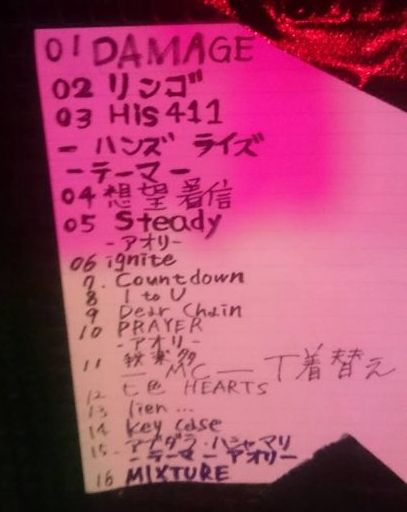 01 DAMAGE
02 リンゴ
03 His 411
- ハンズ ライズ
- テーマー -
04 想望着信
05 Steady
- アオリ -
06 ignite
7. Countdown
8 I to U
9 Dear Chain
10 PRAYER
- アオリ -
11
— MC — T着替え
12 七色 HEARTS
13 lien ...
14 Key case
15 アブダラ・ハシャマリ
- テーマー アオリー
16 MIXTURE